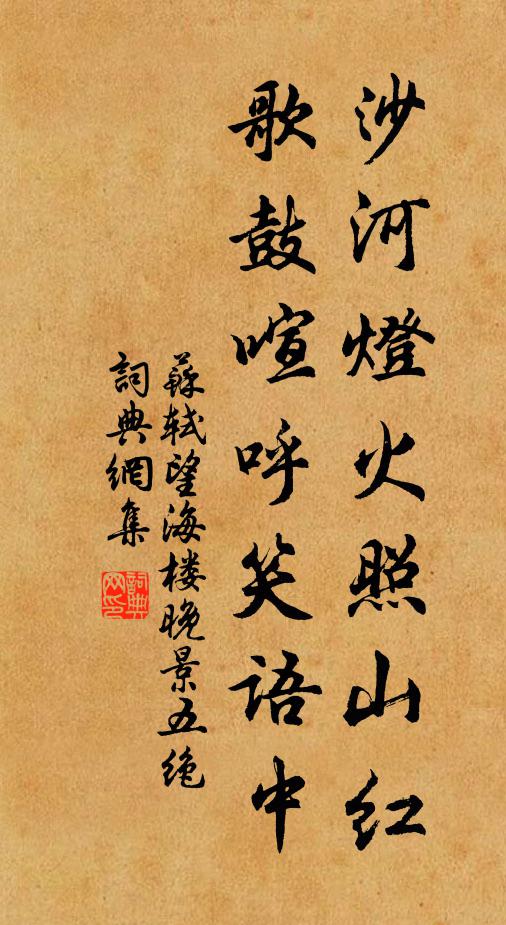 沙河燈火照山红
歌鼓喧呼笑语中
蘇轼望海楼晚景五绝
詞典網集
詞典网印